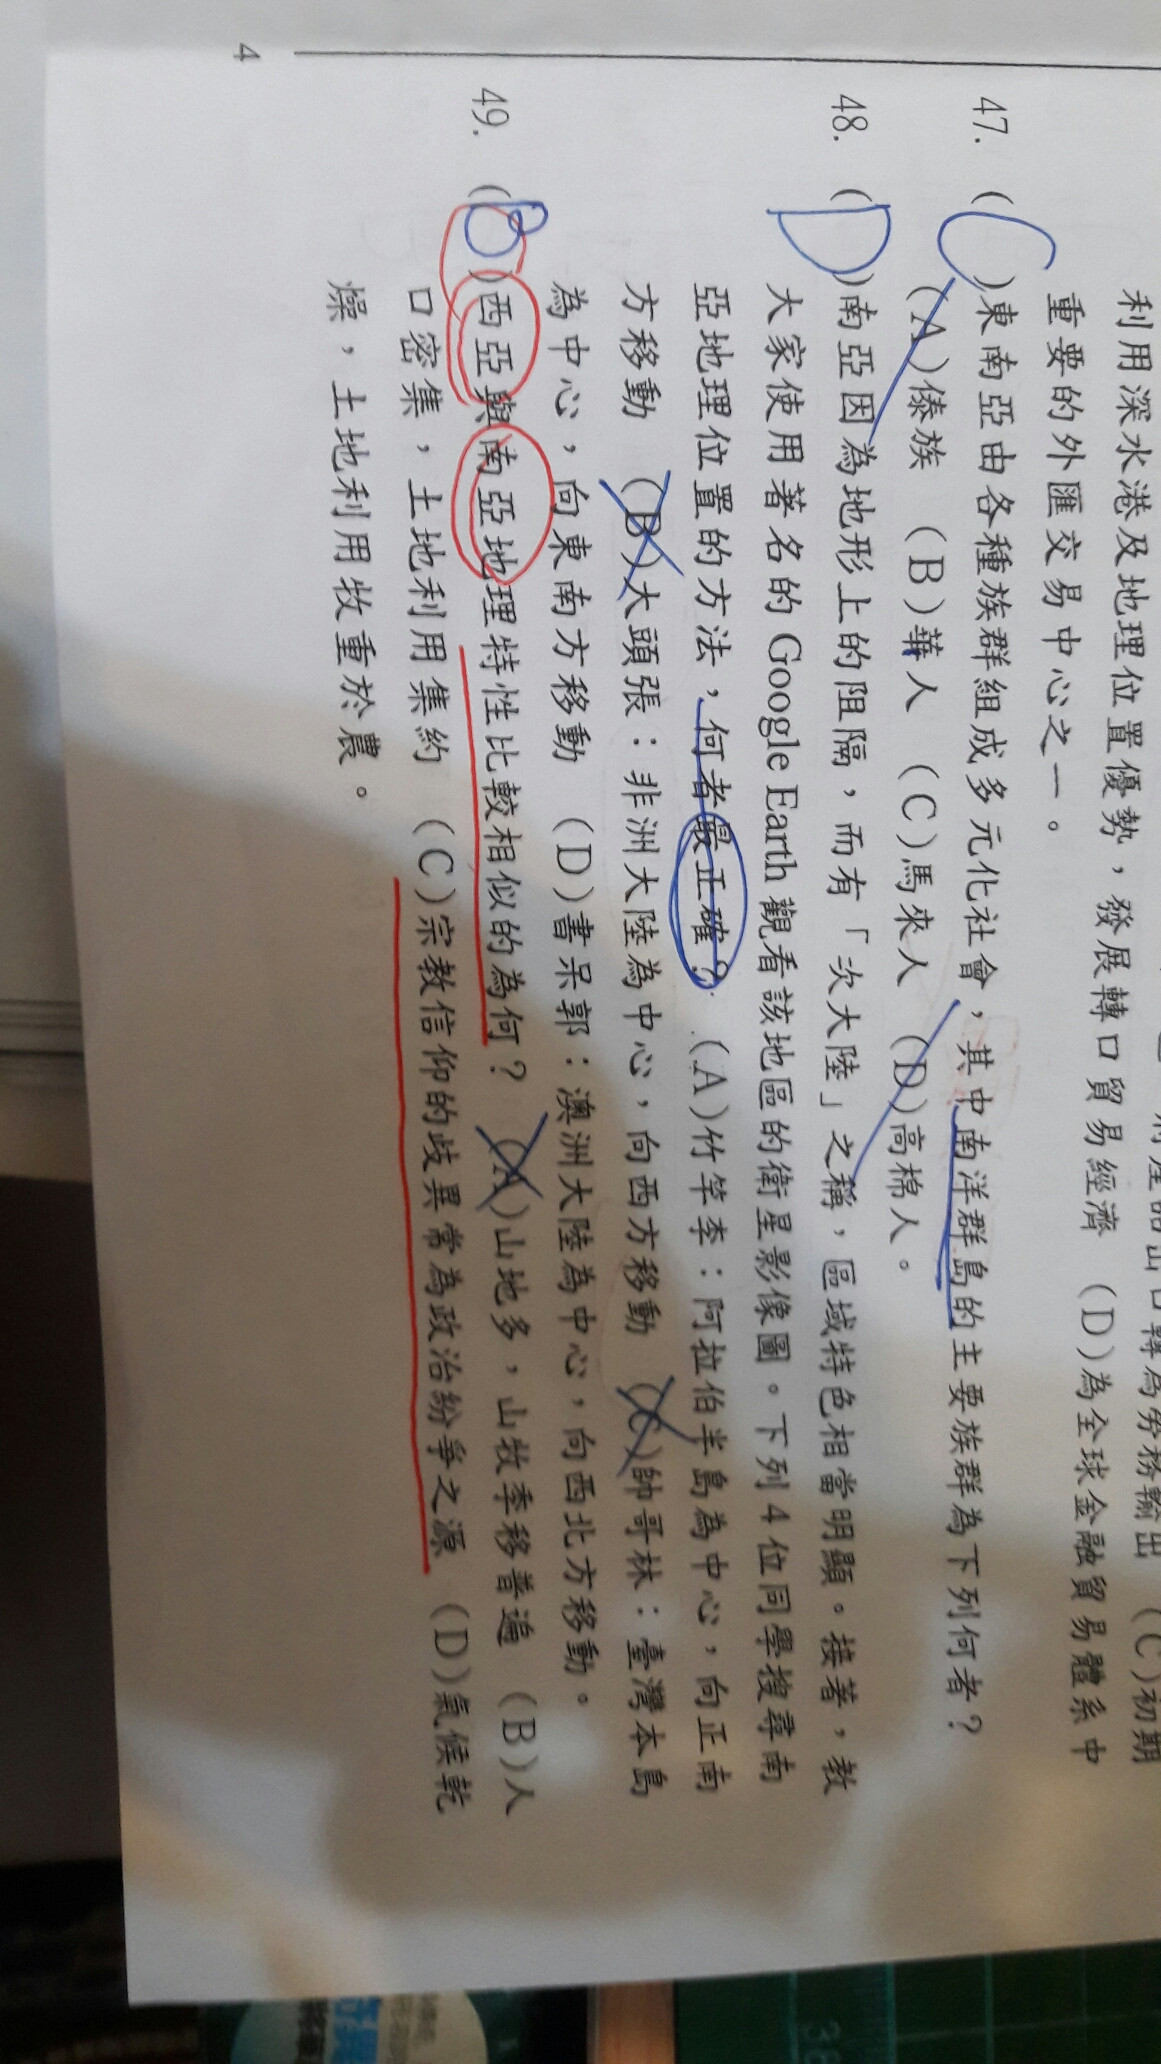 利用深水港及地理位置優勢,發展轉口貿易經濟 (D)為全球金融貿易體系中
重要的外匯交易中心之一。
47. (C)東南亞由各種族群組成多元化社會,其中南洋群島的主要族群為下列何者?
(A)傣族 (B)華人 (C)馬來人 (D)高棉人。
48. (D)南亞因為地形上的阻隔,而有「次大陸」之稱,區域特色相當明顯。接著,教
大家使用著名的 Google Earth 觀看該地區的衛星影像圖。下列 4 位同學搜尋南
亞地理位置的方法,何者最正確? (A)竹竿李:阿拉伯半島為中心,向正南
方移動 (B)大頭張:非洲大陸為中心,向西方移動 (C)帥哥林:臺灣本島
為中心,向東南方移動 (D)書呆郭:澳洲大陸為中心,向西北方移動。
49. (B)西亞與南亞地理特性比較相似的為何? (A)山地多,山牧季移普遍 (B)人
口密集,土地利用集約 (C)宗教信仰的歧異常為政治紛爭之源 (D)氣候乾
燥,土地利用牧重於農。
4